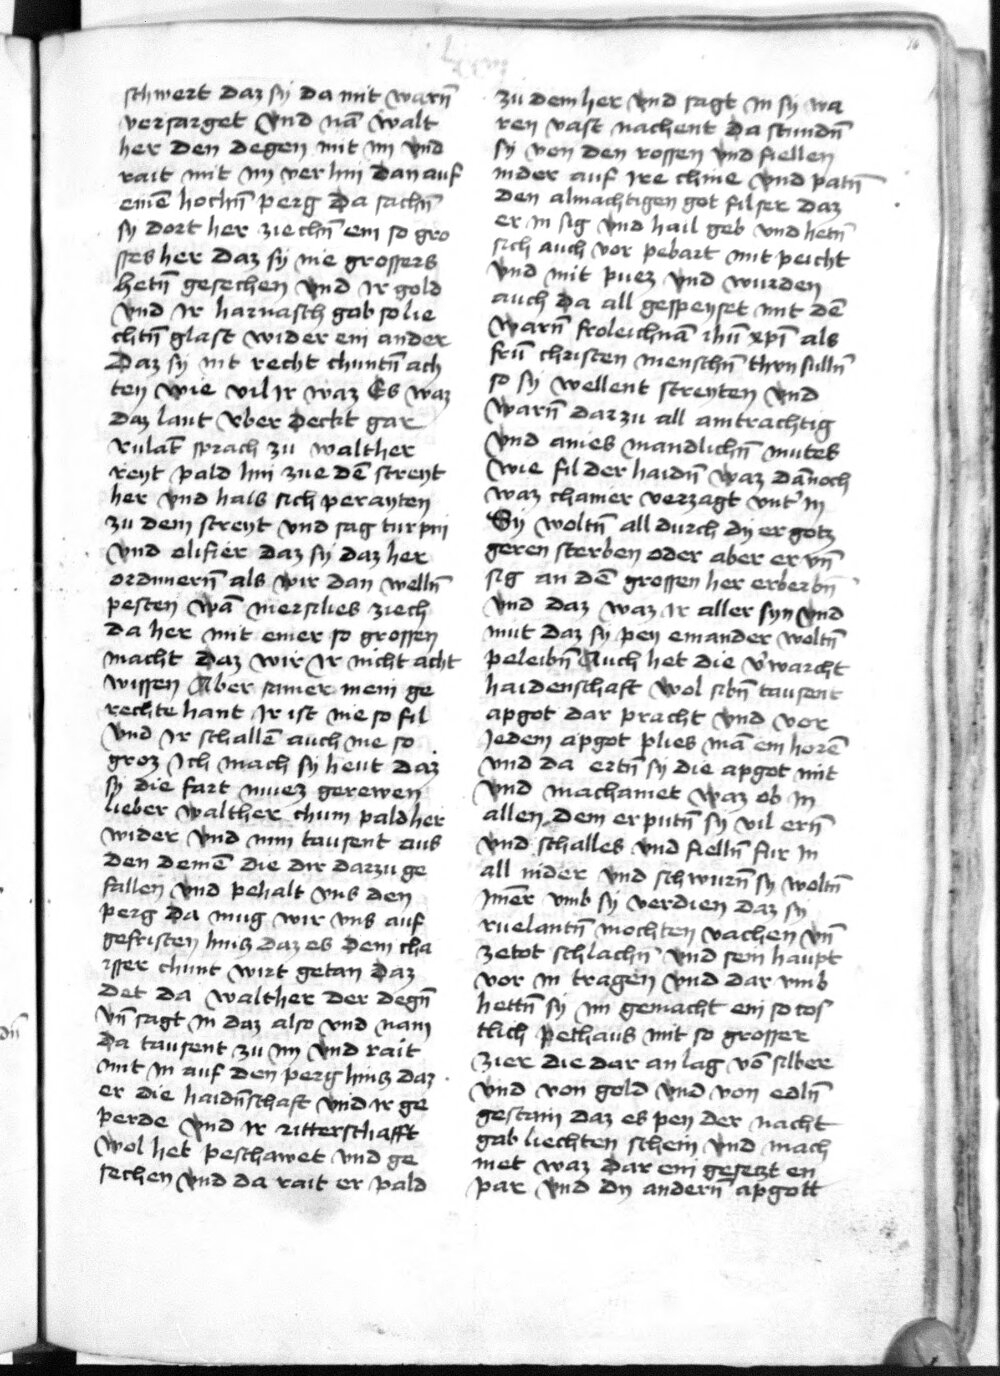 schwert daz sy da mit warn̄
versarget vnd nā walt
her den degen mit im vnd
rait mit im ver hin dan auf
einē hochn̄ perg da sachn̄
sy dort her ziechn̄ ein so gro
sses her daz sy nie grossers
hetn̄ gesechen vnd ir gold
vnd ir harnasch gab so lie
chtn̄ glast wider ein ander
daz sy nit recht chuntn̄ ach
ten wie vil ir waz Es waz
daz lant vber deckt gar
rulāt sprach zu walther
reyt pald hin zue dē streyt
her vnd hais sich perayten
zu dem streyt vnd sag turpin
vnd olifier daz sy daz her
ordinnern̄ als wir dan welln̄
pesten wā mersilies ziech
da her mit einer so grossen
macht daz wir ir nicht acht
wissen Aber samer mein ge
rechte hant ir ist nie so fil
vnd ir schallē auch nie so
groz ich mach sy heut daz
sy die fart muez gerewen
lieber walther chum pald her
wider vnd nim tausent aus
den demē die dir darzu ge
fallen vnd pehalt vns den
perg da mug wir vns auf
gefristen hincz daz es dem cha
isser chunt wirt getan daz
det da walther der degn̄
vn̄ sagt in daz also vnd nam
da tausent zu im vnd rait
mit in auf den perg hincz daz
er die haidn̄schaft vnd ir ge
perde vnd ir ritterschafft
wol het peschawet vnd ge
sechen vnd da rait er pald
zu dem her vnd sagt in sy wa
ren vast nachent da stundn̄
sy von den rossen vnd fiellen
nider auf ire chnie vnd patn̄
den almachtigen got fil ser daz
er in sig vnd hail geb vnd hetn̄
sich auch vor pebart mit peicht
vnd mit puez vnd wurden
auch da all gespeyset mit dē
warn̄ froleichnā ihū xpī als
frū christen menschn̄ thvn sulln̄
so sy wellent streyten vnd
warn̄ dar zu all aintrachtig
vnd ains mandlichn̄ mutes
wie fil der haidn̄ waz dānoch
waz chainer verzagt vnt' in
Sy woltn̄ all durch dy er gotz
geren sterben oder aber er vn̄
sig an dē grossen her erberbn̄
vnd daz waz ir aller syn vnd
mut daz sy pey einander woltn̄
peleibn̄ Auch het die v'warcht
haidenschaft wol sibn̄ tausent
apgot dar pracht vnd vor
iedem apgot plies mā ein horē
vnd da ertn̄ sy die apgot mit
vnd machamet waz ob in
allen dem erputn̄ sy vil ern̄
vnd schalles vnd fielln̄ fur in
all nider vnd schwurn̄ sy woltn̄
imēr vmb sy verdien daz sy
ruelantn̄ mochten vachen vn̄
zetot schlachn̄ vnd sein haupt
vor in tragen vnd dar vmb
hettn̄ sy im gemacht ein so cos
tlich pethaus mit so grosser
zier die dar an lag vō silber
vnd von gold vnd von edln̄
gestain daz es pey der nacht
gab liechten schein vnd mach
met waz dar ein gesetzt en
par vnd dy andern̄ apgott